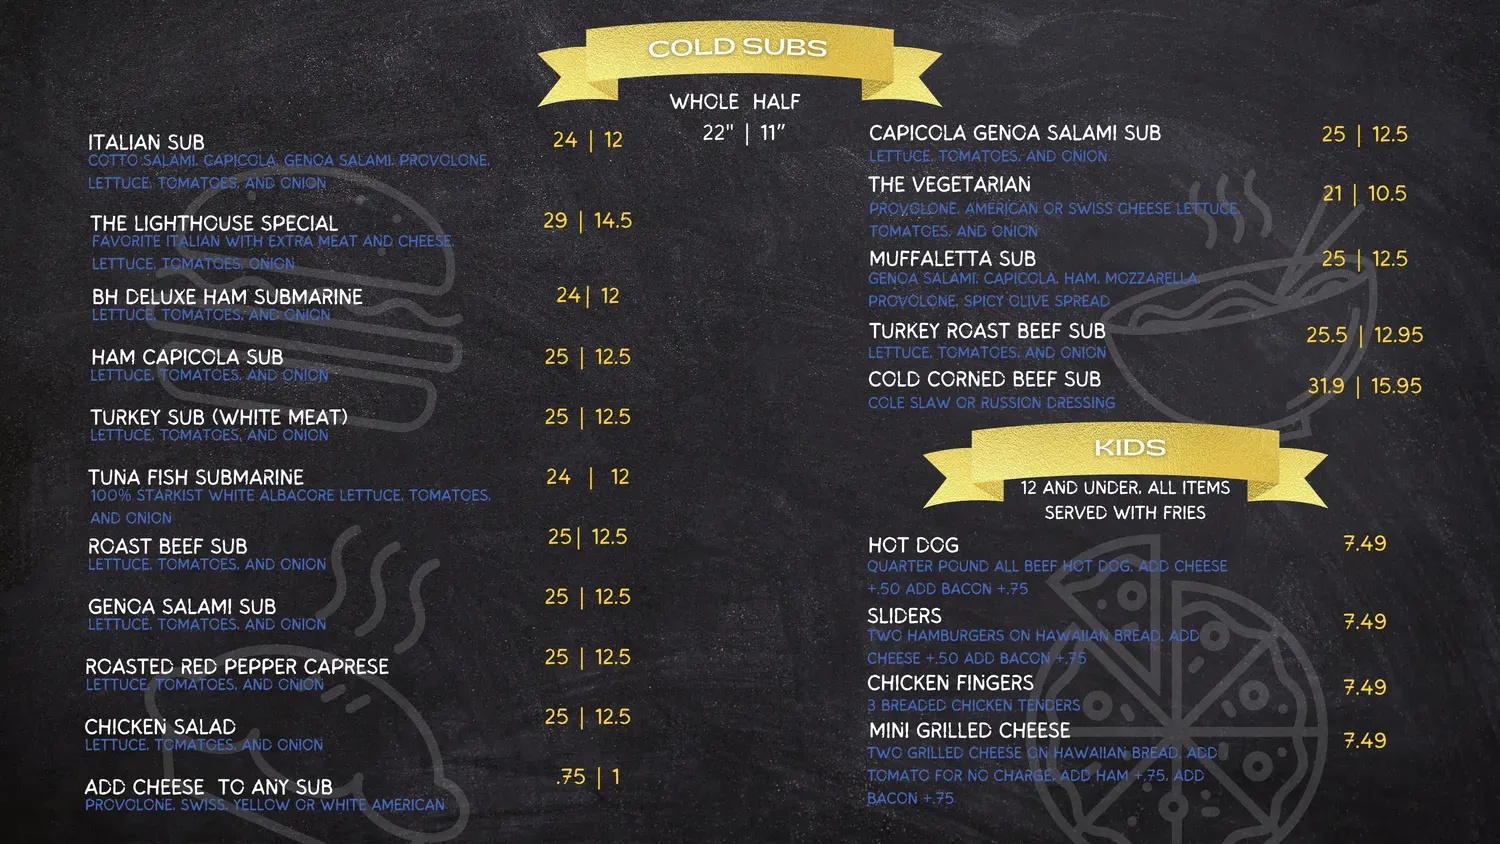 COLD SUBS
WHOLE HALF
22" | 11"
ITALIAN SUB 24 | 12
COTTO SALAMI, CAPICOLA, GENOA SALAMI, PROVOLONE,
LETTUCE, TOMATOES, AND ONION
THE LIGHTHOUSE SPECIAL 29 | 14.5
FAVORITE ITALIAN WITH EXTRA MEAT AND CHEESE,
LETTUCE, TOMATOES, ONION
BH DELUXE HAM SUBMARINE 24| 12
LETTUCE, TOMATOES, AND ONION
HAM CAPICOLA SUB 25 | 12.5
LETTUCE, TOMATOES, AND ONION
TURKEY SUB (WHITE MEAT) 25 | 12.5
LETTUCE, TOMATOES, AND ONION
TUNA FISH SUBMARINE 24 | 12
100% STARKIST WHITE ALBACORE LETTUCE, TOMATOES,
AND ONION
ROAST BEEF SUB 25| 12.5
LETTUCE, TOMATOES, AND ONION
GENOA SALAMI SUB 25 | 12.5
LETTUCE, TOMATOES, AND ONION
ROASTED RED PEPPER CAPRESE 25 | 12.5
LETTUCE, TOMATOES, AND ONION
CHICKEN SALAD 25 | 12.5
LETTUCE, TOMATOES, AND ONION
ADD CHEESE TO ANY SUB .75 | 1
PROVOLONE, SWISS, YELLOW OR WHITE AMERICAN
CAPICOLA GENOA SALAMI SUB 25 | 12.5
LETTUCE, TOMATOES, AND ONION
THE VEGETARIAN 21 | 10.5
PROVOLONE, AMERICAN OR SWISS CHEESE LETTUCE,
TOMATOES, AND ONION
MUFFALETTA SUB 25 | 12.5
GENOA SALAMI, CAPICOLA, HAM, MOZZARELLA,
PROVOLONE, SPICY OLIVE SPREAD
TURKEY ROAST BEEF SUB 25.5 | 12.95
LETTUCE, TOMATOES, AND ONION
COLD CORNED BEEF SUB 31.9 | 15.95
COLE SLAW OR RUSSION DRESSING
KIDS
12 AND UNDER, ALL ITEMS
SERVED WITH FRIES
HOT DOG 7.49
QUARTER POUND ALL BEEF HOT DOG, ADD CHEESE
+.50 ADD BACON +.75
SLIDERS 7.49
TWO HAMBURGERS ON HAWAIIAN BREAD, ADD
CHEESE +.50 ADD BACON +.75
CHICKEN FINGERS 7.49
3 BREADED CHICKEN TENDERS
MINI GRILLED CHEESE 7.49
TWO GRILLED CHEESE ON HAWAIIAN BREAD, ADD
TOMATO FOR NO CHARGE, ADD HAM +.75, ADD
BACON +.75